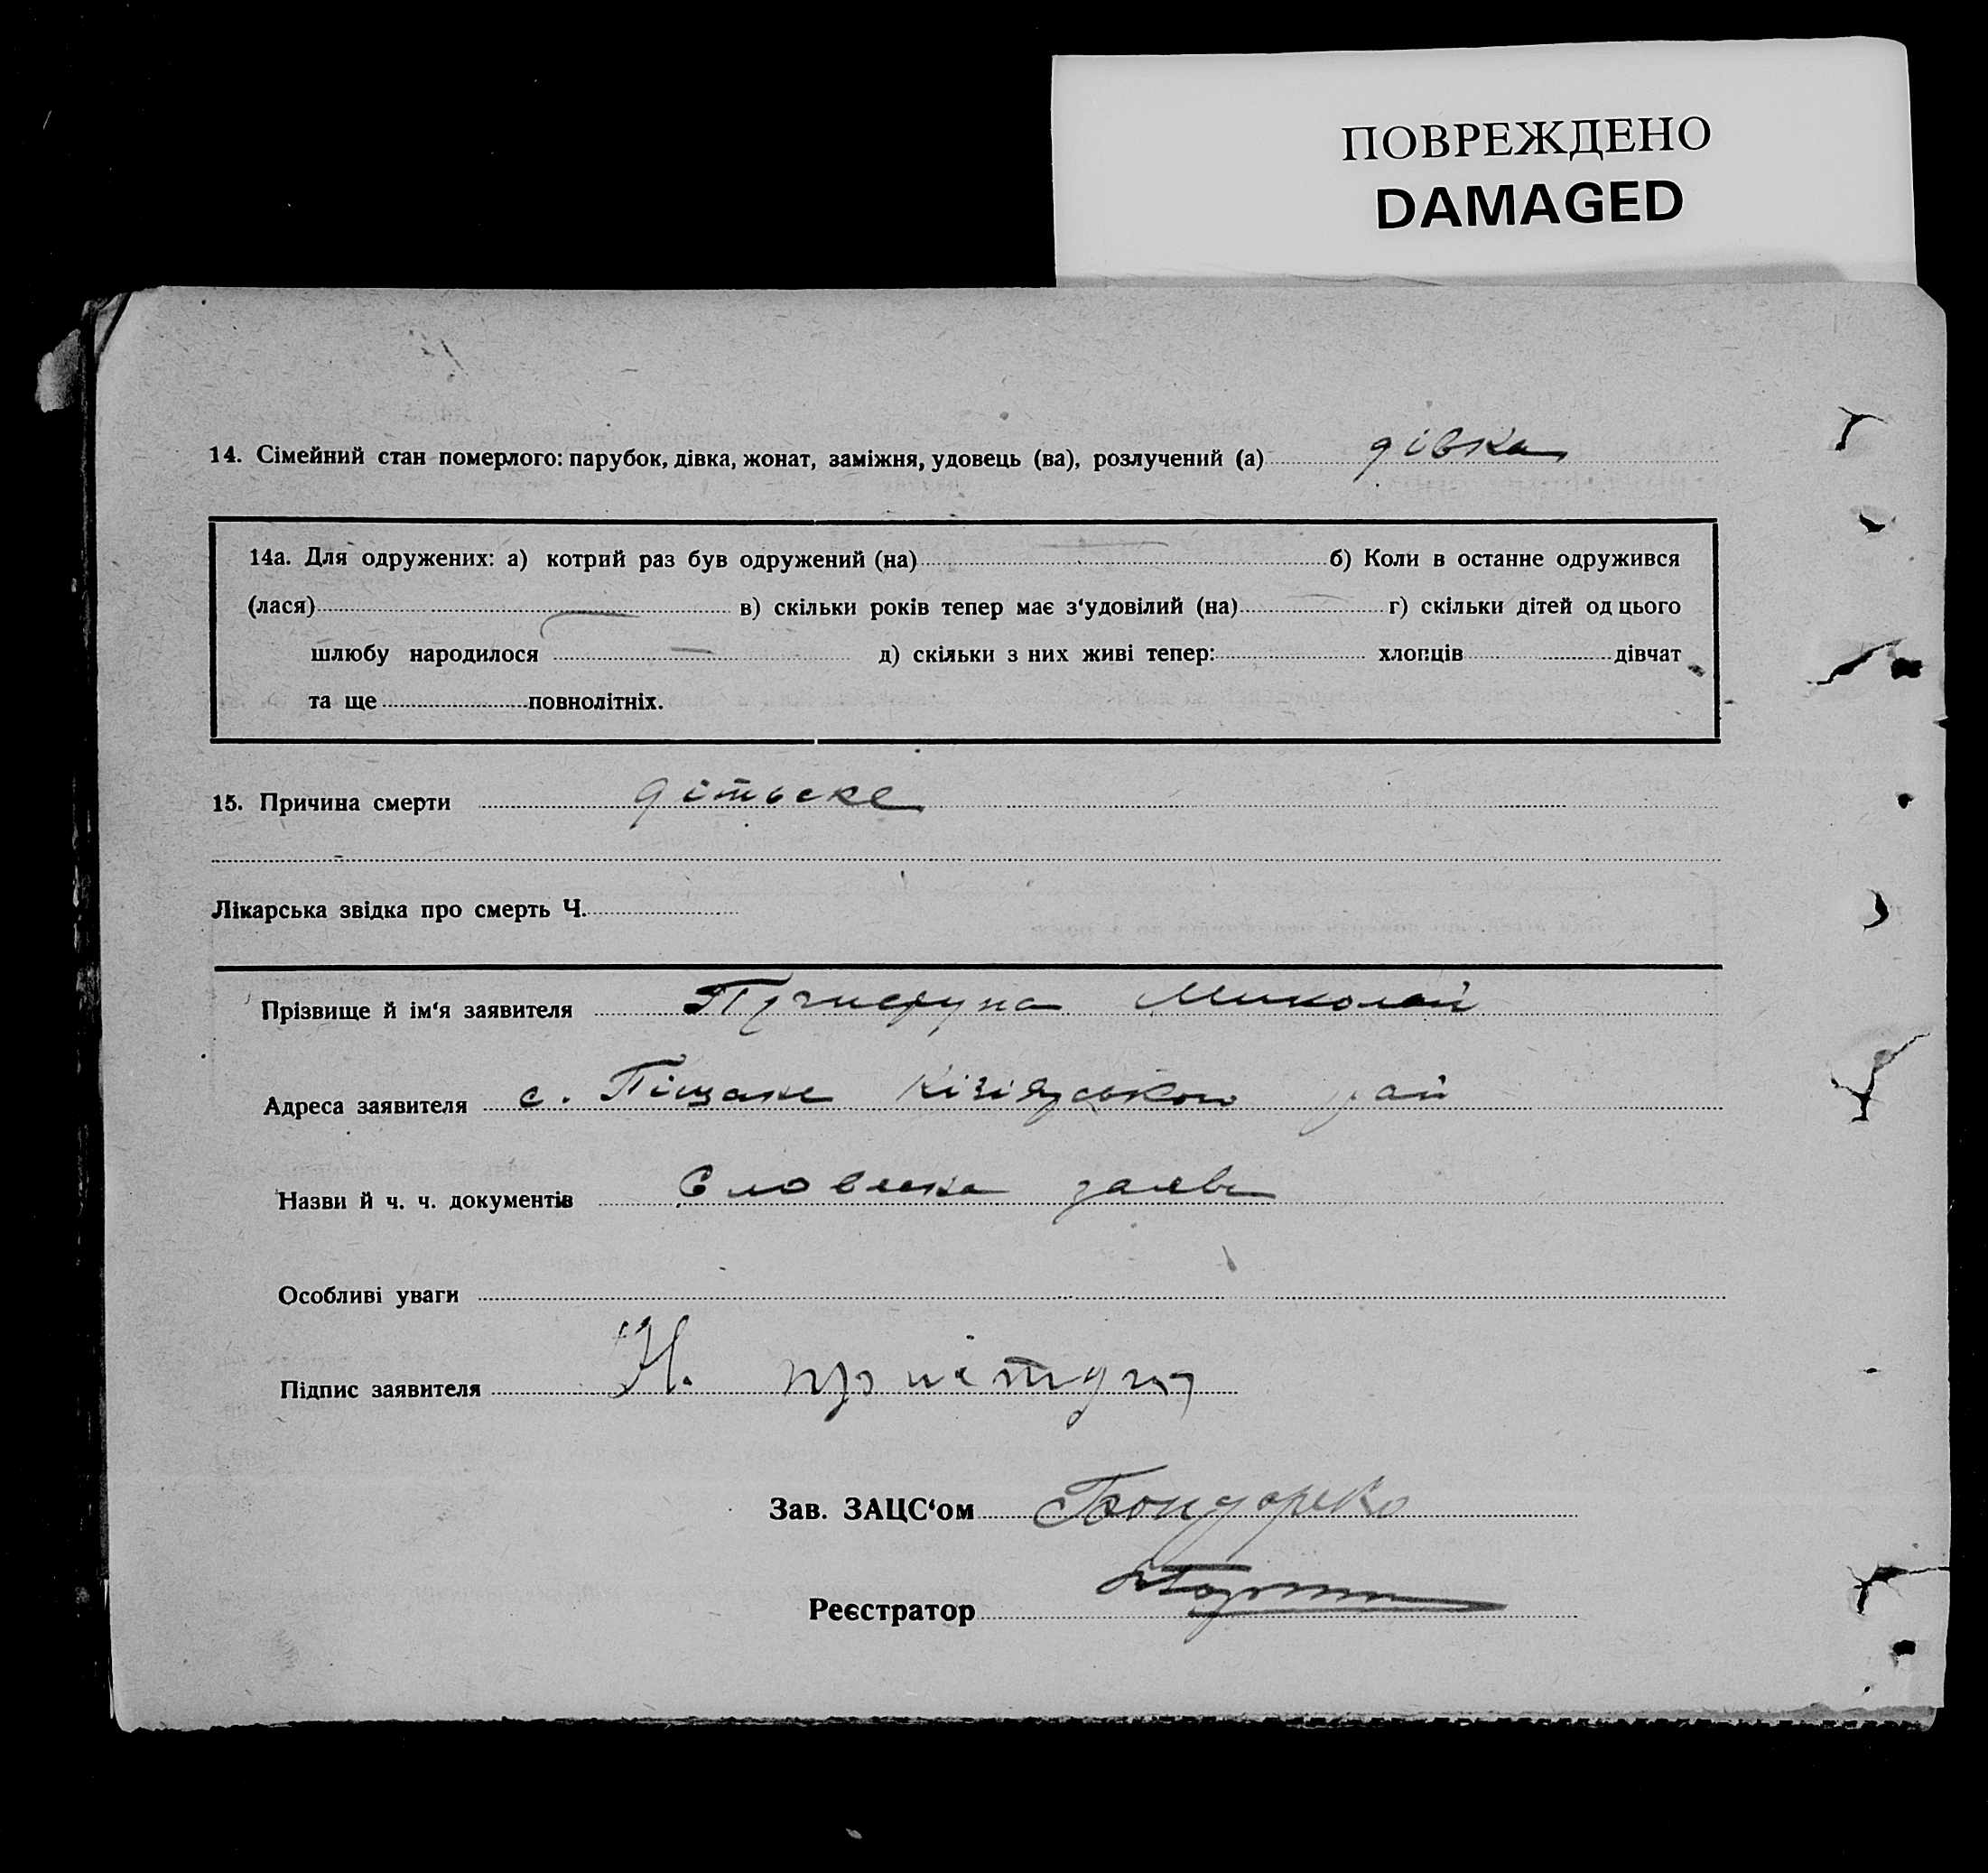 ПОВРЕЖДЕНО
DAMAGED
14. Сімейний стан померлого: парубок, дівка, жонат, заміжня, удовець (ва), розлучений (а) дівка
14а. Для одружених: а) котрий раз був одружений (на) б) Коли в останне одружився
(лася) в) скільки років тепер має з‘удовілий (на) г) скільки дітей од цього
шлюбу народилося д) скільки з них живі тепер: хлопців дівчат
та ще повнолітніх.
15. Причина смерти дітьске
Лікарська звідка про смерть Ч.
Прізвище й ім‘я заявителя Миколай
Адреса заявителя с. Піщане рай
Назви й ч. ч. документів Словесна заява
Особливі уваги
Підпис заявителя Н.
Зав. ЗАЦС‘ом
Реєстратор